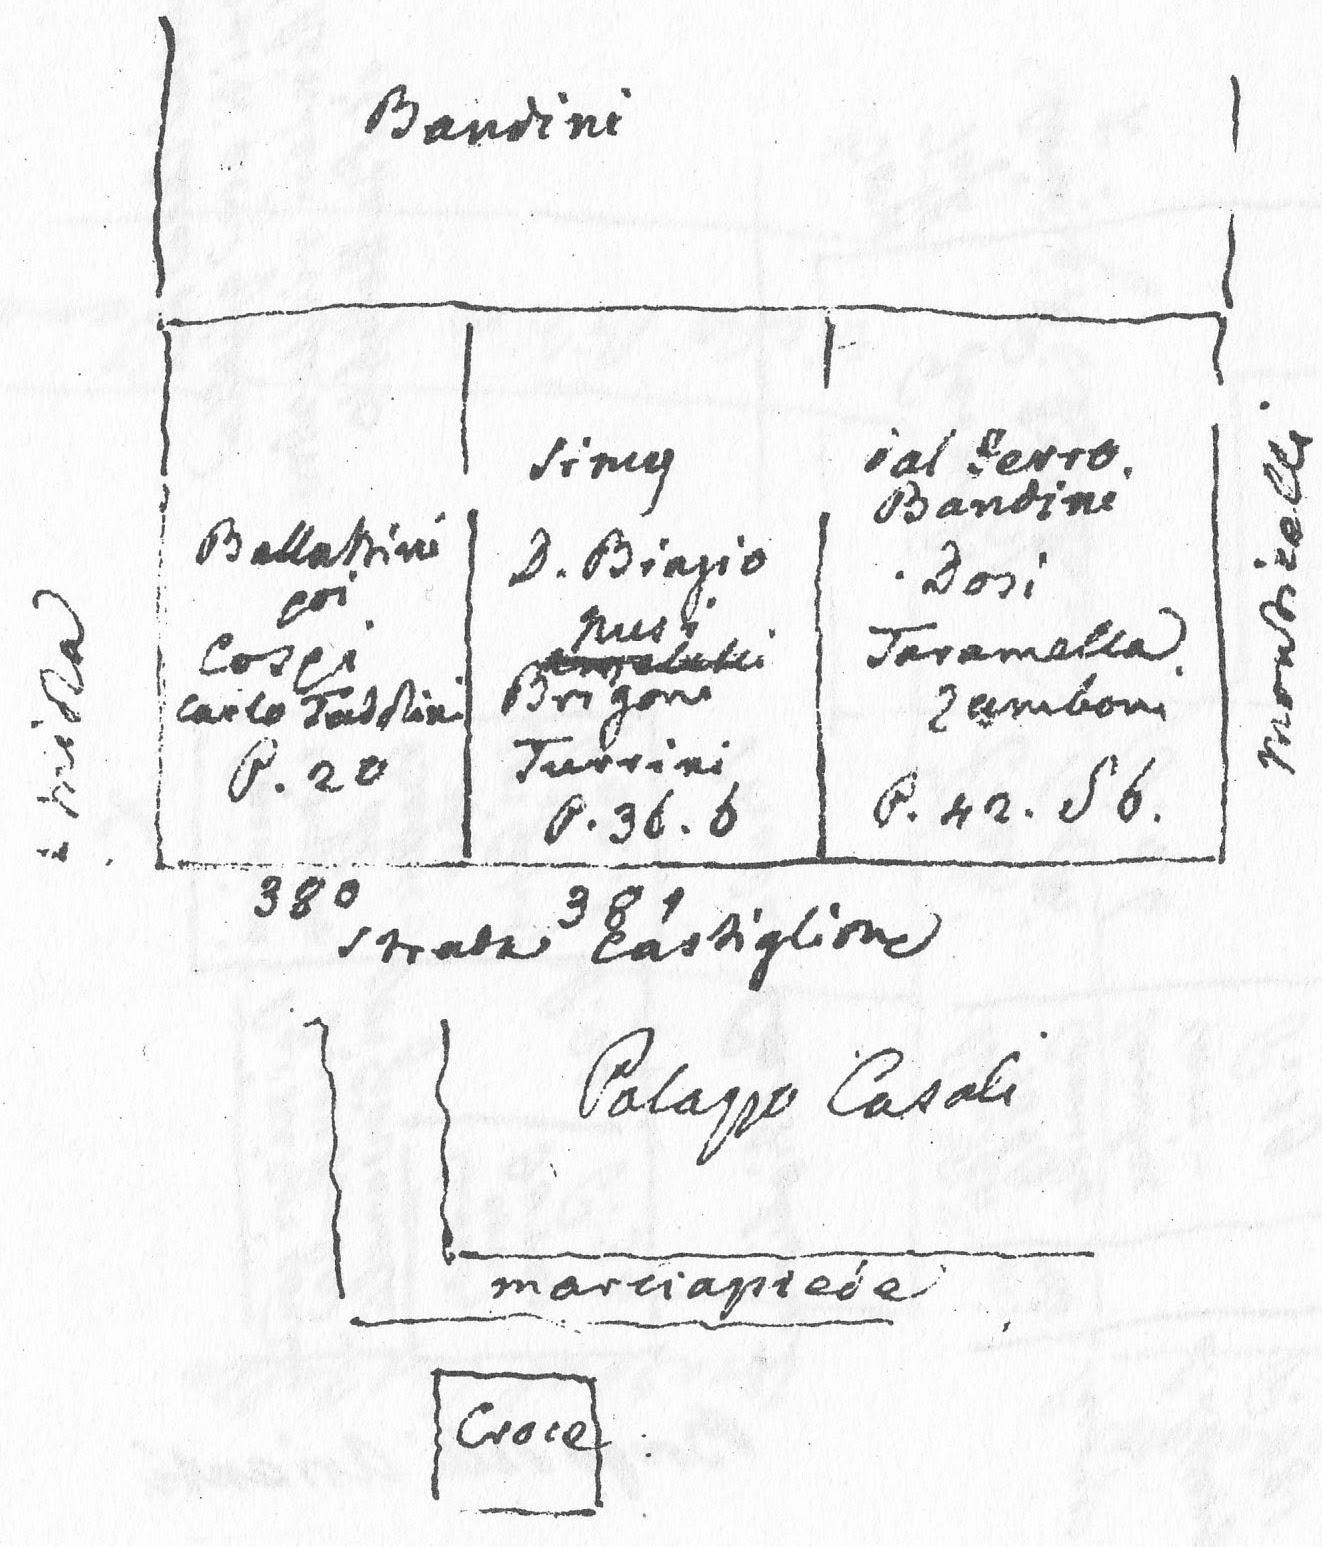 Bandini
Ballattini
poi
Cospi
Carlo Taddini
P. 20
D. Biagio
Brigoni
Turrini
P. 36. 6
dal Ferro.
Bandini
Dosi
Taramella
Zamboni
P. 42. 56.
Mondizelli
380
381
Strada Castiglione
Palazzo Casali
marciapiede
Croce